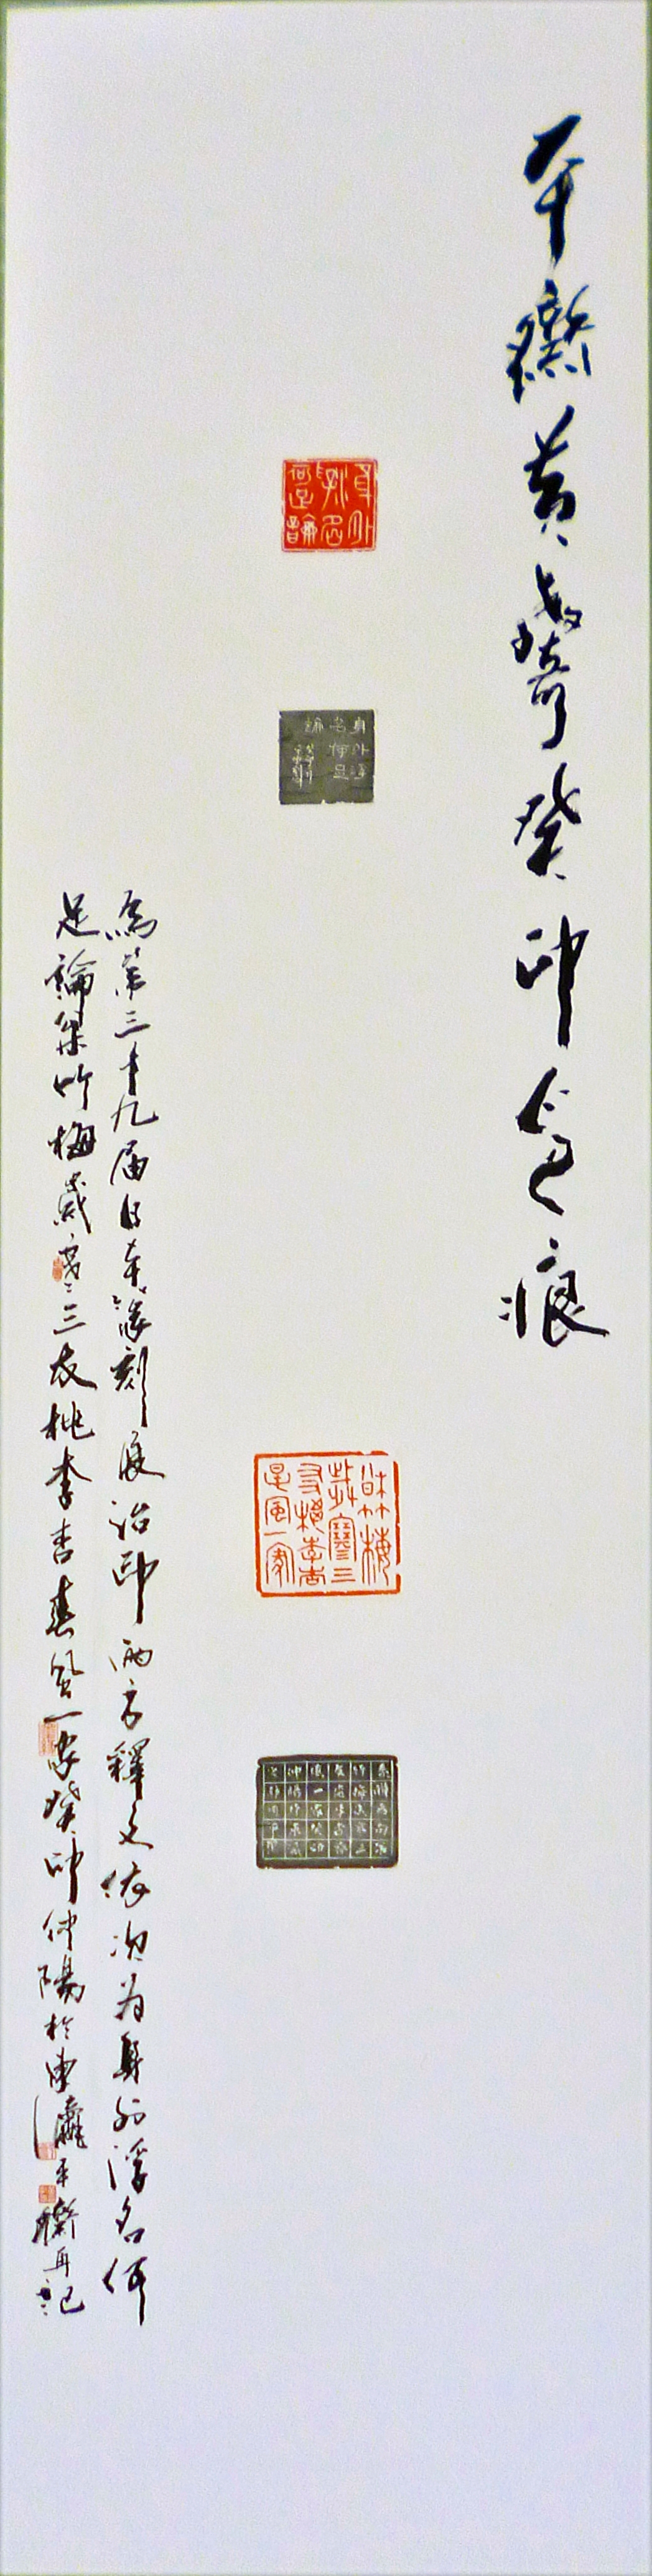 平黃癸卯痕
身外
浮名
何足論
身外浮
名何足
論
松竹梅
歲寒三
友桃李杏
春風一家
為第三十九届日本篆刻展治印兩方釋文依次為身外浮名何
足論松竹梅歲寒三友桃李杏春風一家癸卯仲陽於東瀛平再記